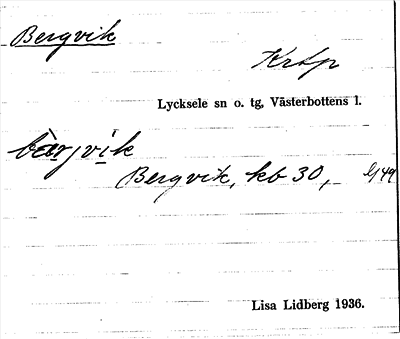 Bergvik
Krtp
Lycksele sn o. tg, Västerbottens l.
bàrjvik
Bergvik, kb 30,
Lisa Lidberg 1936.